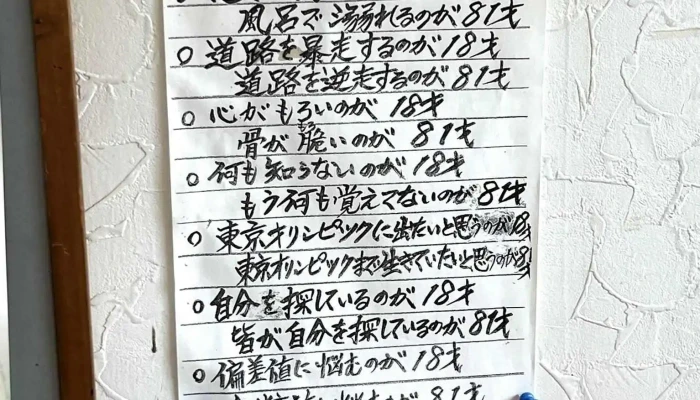 風呂で溺れるのが81才
○道路を暴走するのが18才
道路を逆走するのが81才
○心がもろいのが 18才
骨が脆いのが 81才
○何も知らないのが 18才
もう何も覚えてないのが81才
○東京オリンピックに出たいと思うのが18才
東京オリンピックまで生きていたいと思うのが81才
○自分を探しているのが18才
皆が自分を探しているのが81才
○偏差値に悩むのが18才